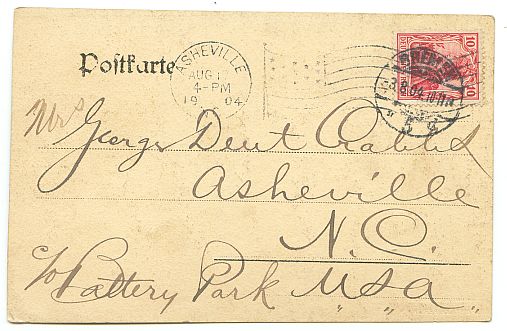 Postkarte
ASHEVILLE
AUG 1
4-PM
1904
10 10
BREMEN
Mrs George Dent Crabbs
Asheville
N.C.
c/o Battery Park USA
" " "